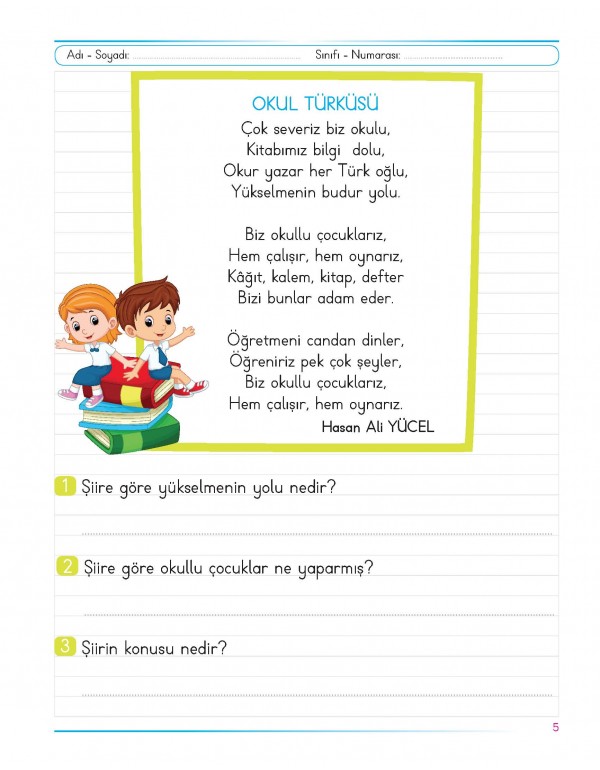 Adı - Soyadı: Sınıfı - Numarası:
OKUL TÜRKÜSÜ
Çok severiz biz okulu,
Kitabımız bilgi dolu,
Okur yazar her Türk oğlu,
Yükselmenin budur yolu.
Biz okullu çocuklarız,
Hem çalışır, hem oynarız,
Kâğıt, kalem, kitap, defter
Bizi bunlar adam eder.
Öğretmeni candan dinler,
Öğreniriz pek çok şeyler,
Biz okullu çocuklarız,
Hem çalışır, hem oynarız.
Hasan Ali YÜCEL
1 Şiire göre yükselmenin yolu nedir?
2 Şiire göre okullu çocuklar ne yaparmış?
3 Şiirin konusu nedir?
5